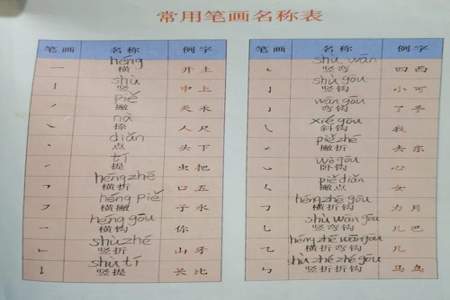 常用笔画名称表
笔画 名称 例字
一 héng 横 井 上
丨 shù 竖 中 上
丿 piě 撇 关 水
㇏ nà 捺 人 尺
丶 diǎn 点 头 下
㇀ tí 提 虫 把
𠃍 héngzhé 横折 口 五
㇇ héng piě 横撇 子 水
乛 héng gōu 横钩 你
𠃊 shùzhé 竖折 山 牙
𠄌 shù tí 竖提 长 比
笔画 名称 例字
㇄ shù wān 竖弯 四 西
亅 shù gōu 竖钩 小 可
㇁ wān gōu 弯钩 了 手
㇂ xié gōu 斜钩 我
𠃋 piězhé 撇折 去 东
㇃ wò gōu 卧钩 心
𡿨 piědiǎn 撇点 女
𠃌 héngzhé gōu 横折钩 力 月
乚 shù wān gōu 竖弯钩 儿 巴
㇈ héng zhé wāngōu 横折弯钩 几
㇉ shù zhé zhé gōu 竖折折钩 马 鸟